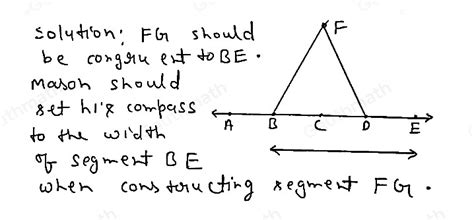 Solution: FG should
be congruent to BE.
Mason should
set his compass
to the width
of segment BE
when constructing segment FG.
F
A B C D E